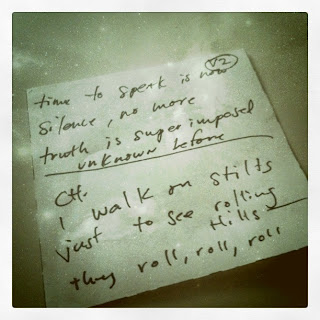 V2
time to speak is now
silence, no more
truth is superimposed
unknown before
CH.
I walk on stilts
just to see rolling
Hills
they roll, roll, roll